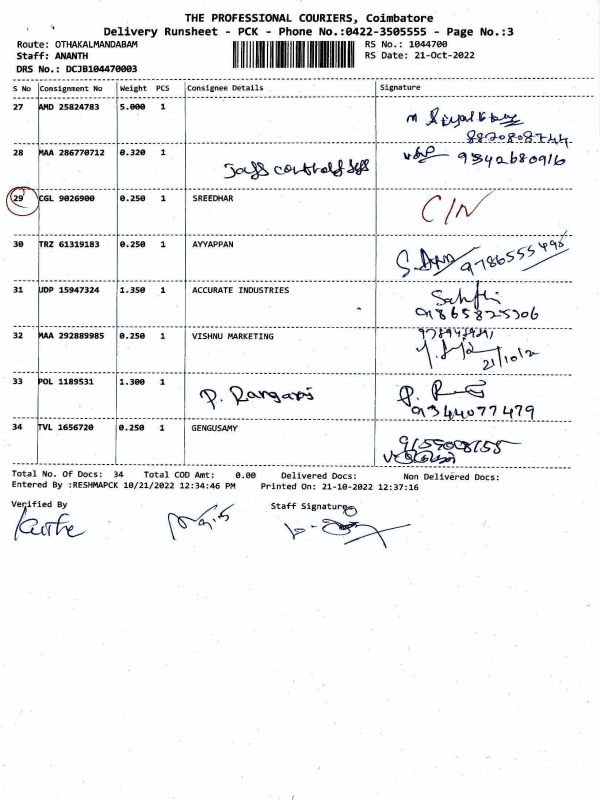 THE PROFESSIONAL COURIERS, Coimbatore
Delivery Runsheet - PCK - Phone No.:0422-3505555 - Page No.:3
Route: OTHAKALMANDABAM RS No.: 1044700
Staff: ANANTH RS Date: 21-Oct-2022
DRS No.: DCJB104470003
S No Consignment No Weight PCS Consignee Details Signature
27 AMD 25824783 5.000 1
8820808744
28 MAA 286770712 0.320 1 9342680916
29 CGL 9026900 0.250 1 SREEDHAR C/N
30 TRZ 61319183 0.250 1 AYYAPPAN
31 UDP 15947324 1.350 1 ACCURATE INDUSTRIES
32 MAA 292889985 0.250 1 VISHNU MARKETING
21/10/2
33 POL 1189531 1.300 1 P. Rangaraj
9344077479
34 TVL 1656720 0.250 1 GENGUSAMY
Total No. Of Docs: 34 Total COD Amt: 0.00 Delivered Docs: Non Delivered Docs:
Entered By :RESHMAPCK 10/21/2022 12:34:46 PM Printed On: 21-10-2022 12:37:16
Verified By Staff Signature